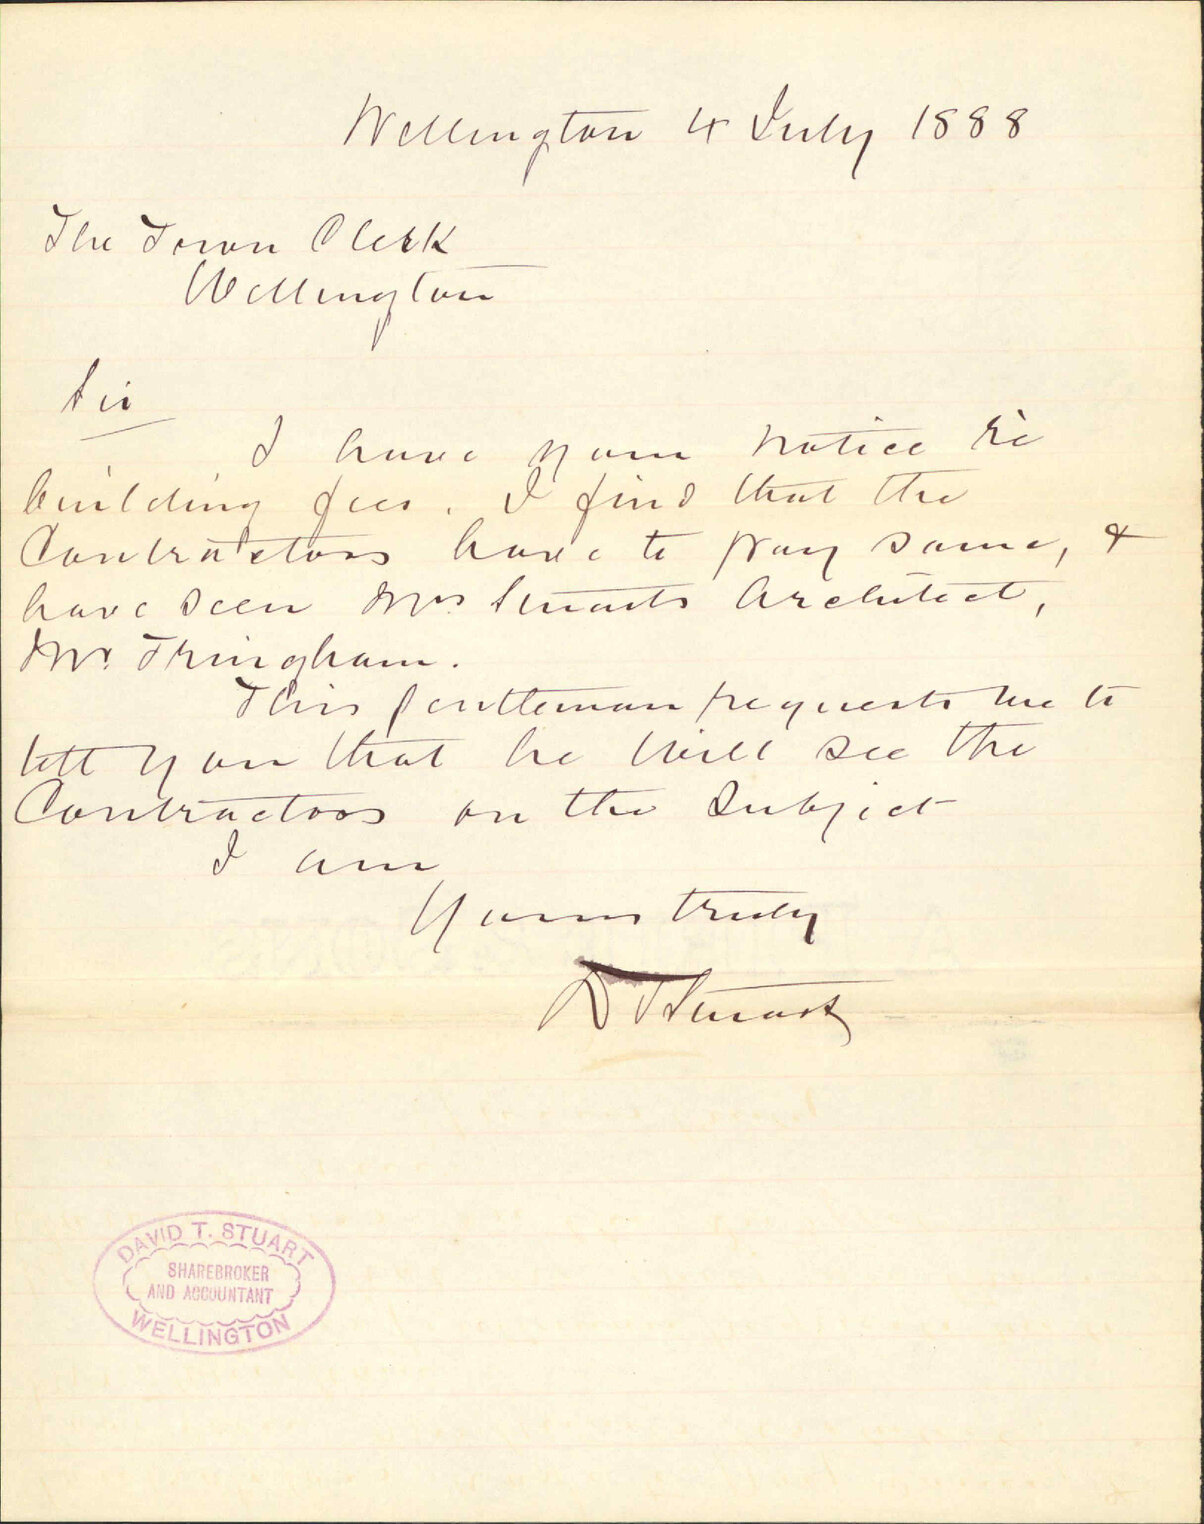 Wellington 4 July 1888
The Town Clerk
Wellington
Sir
I have your notice re
building fees. I find that the
Contractors have to pay same, &
have seen Mrs Stuarts Architect,
Mr. Tringham.
This gentleman requests me to
tell you that he will see the
Contractors on the subject
I am
Yours truly
D T Stuart
DAVID T. STUART
SHAREBROKER
AND ACCOUNTANT
WELLINGTON